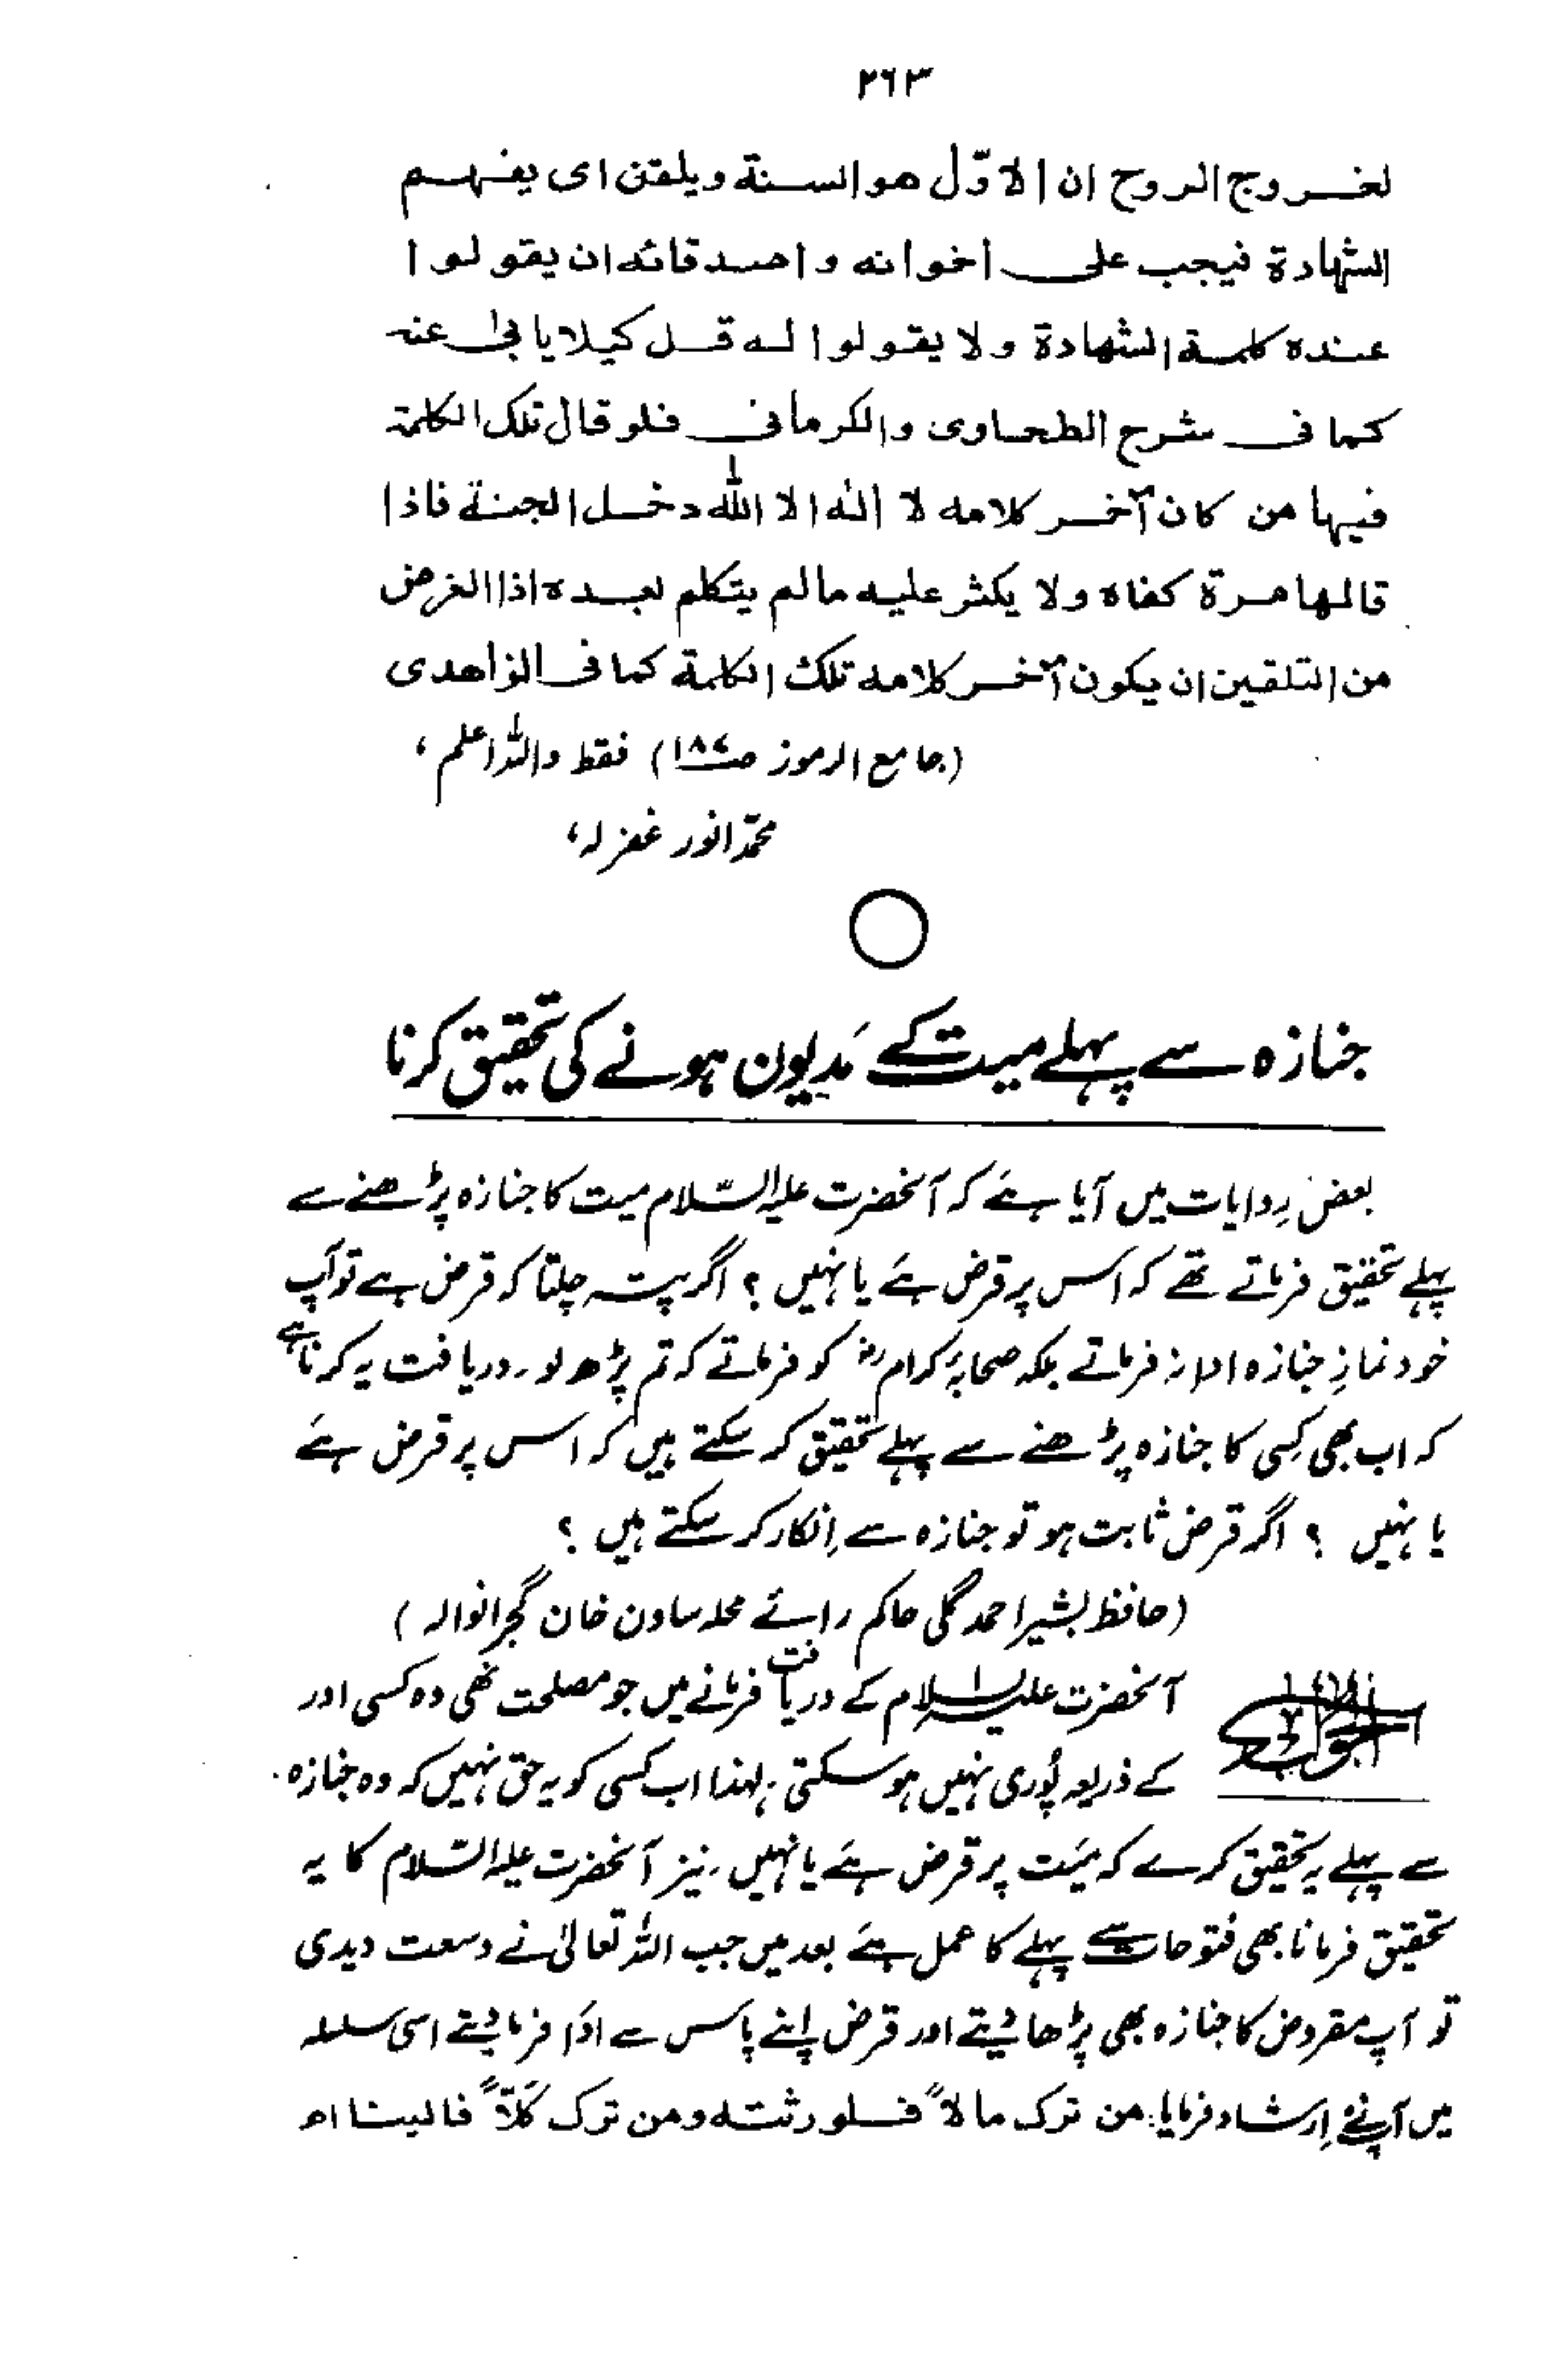 ۲۶۳
لخروج الروح ان الاوّل هو السنة ويلقن اى يفهم
الشهادة فيجب على اخوانه واصدقائه ان يقولوا
عنده كلمة الشهادة ولا يقولوا له قل كيلا يابى عنه
كما فى شرح الطحاوى والكرمانى فلو قال تلك الكلمة
فيها من كان آخر كلامه لا اله الا الله دخل الجنة فاذا
قالها مرة كفاه ولا يكثر عليه مالم يتكلم بعده اذا الغرض
من التلقين ان يكون آخر كلامه تلك الكلمة كما فى الزاهدى
(جامع الرموز ص۱۸۷) فقط واللہ اعلم ،
محمد انور غفرلہ ،
جنازہ سے پہلے میت کے مَدیون ہونے کی تحقیق کرنا
بعض رِوایات میں آیا ہے کہ آنحضرت علیہ السّلام میت کا جنازہ پڑھنے سے
پہلے تحقیق فرماتے تھے کہ اس پر قرض ہے یا نہیں ؟ اگر پتہ چلتا کہ قرض ہے تو آپ
خود نمازِ جنازہ ادا نہ فرماتے بلکہ صحابہ کرام رضؓ کو فرماتے کہ تم پڑھ لو۔ دریافت یہ کرنا ہے
کہ اب بھی کِسی کا جنازہ پڑھنے سے پہلے تحقیق کر سکتے ہیں کہ اس پر قرض ہے
یا نہیں ؟ اگر قرض ثابت ہو تو جنازہ سے اِنکار کر سکتے ہیں ؟
(حافظ بشیر احمد گلی حاکم رائے محلہ ساون خان گجرانوالہ)
الجواب آنحضرت علیہ السلام کے دریافت فرمانے میں جو مصلحت تھی وہ کسی اور
کے ذریعہ پُوری نہیں ہو سکتی ، لہٰذا اب کسی کو یہ حق نہیں کہ وہ جنازہ
سے پہلے یہ تحقیق کرے کہ میّت پر قرض ہے یا نہیں ، نیز آنحضرت علیہ السّلام کا یہ
تحقیق فرمانا بھی فتوحات سے پہلے کا عمل ہے بعد میں جب اللہ تعالیٰ نے وسعت دیدی
تو آپ مقروض کا جنازہ بھی پڑھا دیتے اور قرض اپنے پاس سے ادَا فرما دیتے اسی سلسلہ
میں آپ نے اِرشاد فرمایا: من ترک مالاً فلورثته ومن ترک کَلّاً فالینا اھ